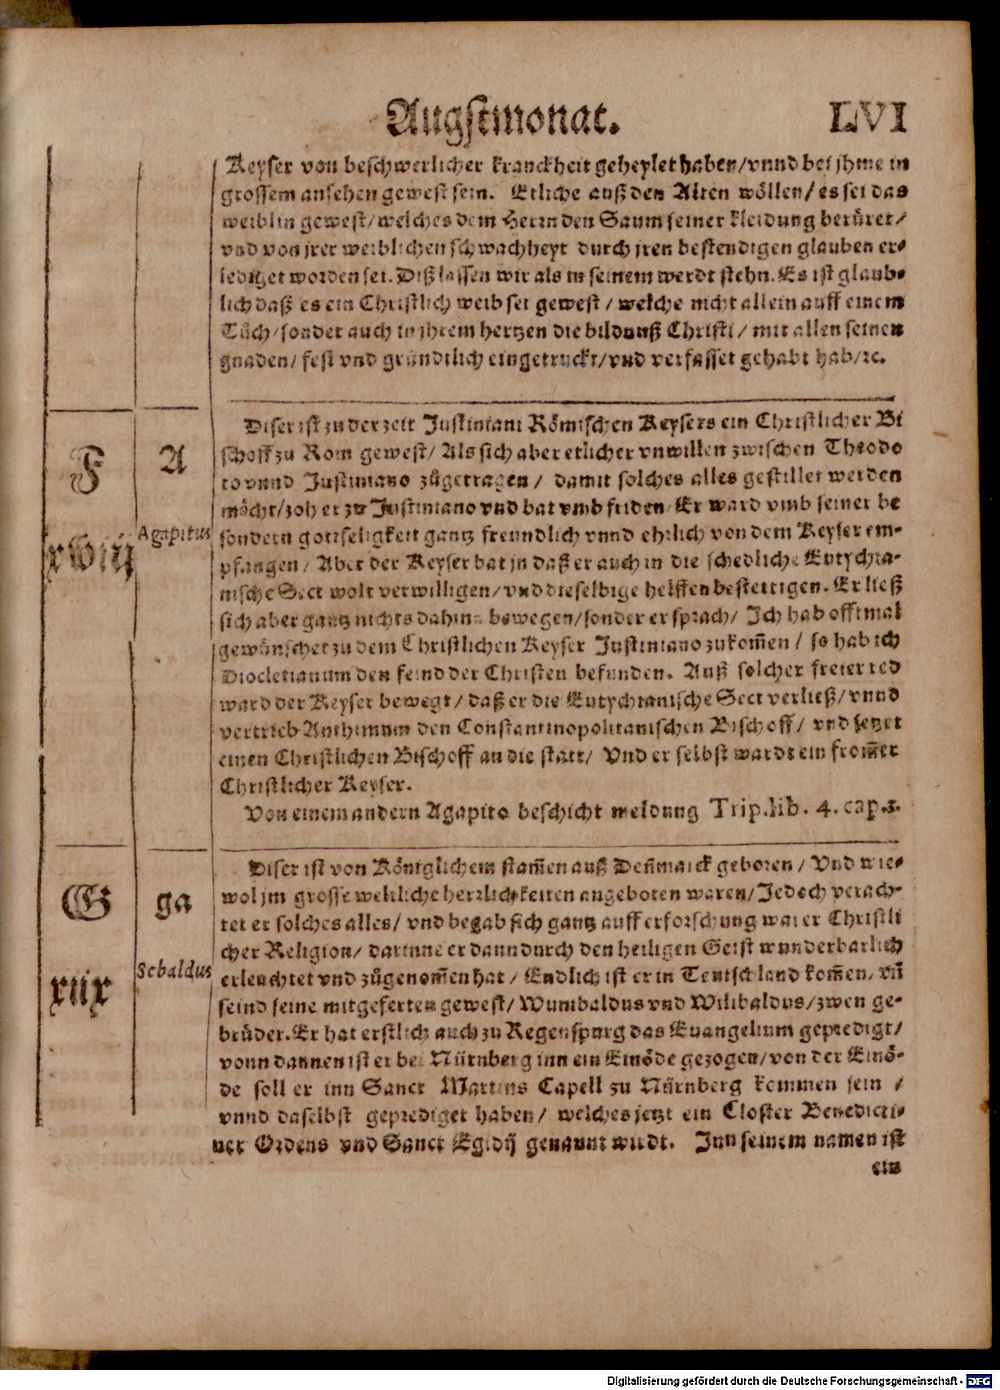 Augstmonat. LVI
Keyser von beschwerlicher kranckheit geheylet haben/vnnd bei jhme in
grossem ansehen gewest sein. Etliche auß den Alten wöllen/es sei das
weiblin gewest/welches dem Herrn den Saum seiner kleidung berüret/
vnd von jrer weiblichen schwachheyt durch jren bestendigen glauben er-
lediget worden sei. Diß lassen wir als in seinem werdt stehn. Es ist glaub-
lich daß es ein Christlich weib sei gewest/welche nicht allein auff einem
Tůch/sonder auch in jhrem hertzen die bildnuß Christi/mit allen seinen
gnaden/fest vnd gründtlich eingetruckt/vnd verfasset gehabt hab/ꝛc.
F A
xviij
Agapitus
Diser ist zu der zeit Justiniani Römischen Keysers ein Christlicher Bi
schoff zu Rom gewest/Als sich aber etlicher vnwillen zwischen Theodo
ro vnnd Justiniano zůgetragen/damit solches alles gestillet werden
möcht/zoh er zu Justiniano vnd bat vmb friden. Er ward vmb seiner be
sondern gottseligkeit gantz freundlich vnnd ehrlich von dem Keyser em-
pfangen/Aber der Keyser bat jn daß er auch in die schedliche Eutychia-
nische Sect wolt verwilligen/vnd dieselbige helffen bestettigen. Er ließ
sich aber gantz nichts dahin bewegen/sonder er sprach/Ich hab offtmal
gewünschet zu dem Christlichen Keyser Justiniano zukom̃en/so hab ich
Diocletianum den feind der Christen befunden. Auß solcher freier red
ward der Keyser bewegt/daß er die Eutychianische Sect verließ/vnnd
vertrieb Anthimum den Constantinopolitanischen Bischoff/vnd setzet
einen Christlichen Bischoff an die statt/Vnd er selbst wardt ein from̃er
Christlicher Keyser.
Von einem andern Agapito beschicht meldung Trip.lib. 4. cap.3.
G ga
xix
Sebaldus
Diser ist von Königlichem stam̃en auß Den̈marck geboren/Vnd wie-
wol jm grosse weltliche herrlichkeiten angeboten waren/Jedoch verach-
tet er solches alles/vnd begab sich gantz auff erforschung warer Christli
cher Religion/darinne er dann durch den heiligen Geist wunderbarlich
erleuchtet vnd zůgenom̃en hat/Endlich ist er in Teutschland kom̃en/vñ
seind seine mitgeferten gewest/Wunibaldus vnd Wilibaldus/zwen ge-
brüder. Er hat erstlich auch zu Regenspurg das Euangelium geprediget/
vonn dannen ist er bei Nürnberg inn ein Einöde gezogen/von der Einö-
de soll er inn Sanct Martins Capell zu Nürnberg kommen sein /
vnnd daselbst geprediget haben/ welches jetzt ein Closter Benedicti-
ner Ordens vnd Sanct Egidij genannt wirdt. Inn seinem namen ist
ein
Digitalisierung gefördert durch die Deutsche Forschungsgemeinschaft - DFG